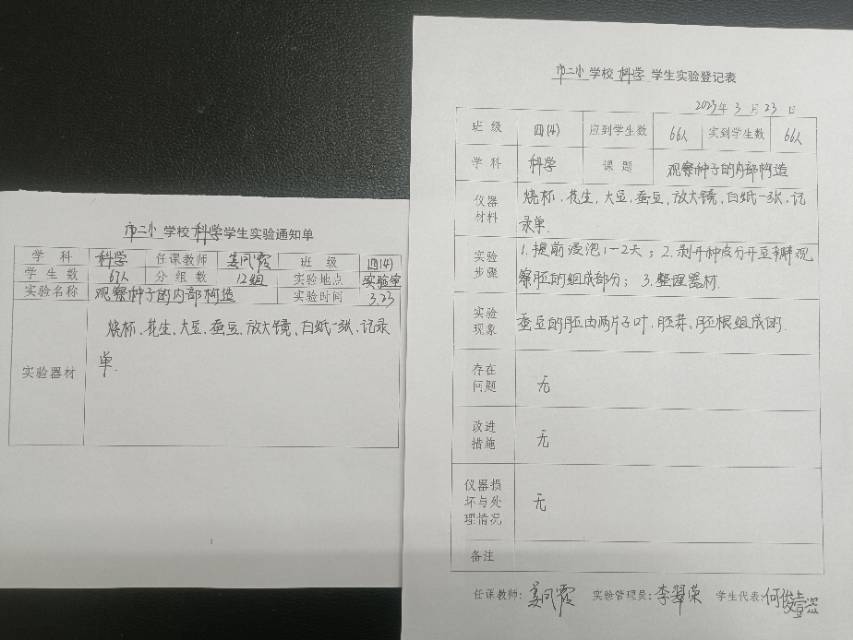 市二小学校科学学生实验通知单
学科 科学 任课教师 姜凤霞 班级 四(4)
学生数 67人 分组数 12组 实验地点 实验室
实验名称 观察种子的内部构造 实验时间 3.23
实验器材 烧杯、花生、大豆、蚕豆、放大镜、白纸一张、记录
单.
市二小学校科学学生实验登记表
2023年3月23日
班级 四(4) 应到学生数 66人 实到学生数 66人
学科 科学 课题 观察种子的内部构造
仪器材料 烧杯、花生、大豆、蚕豆、放大镜、白纸一张、记
录单.
实验步骤 1.提前浸泡1-2天；2.剥开种皮分开豆瓣观
察胚的组成部分；3.整理器材.
实验现象 蚕豆的胚由两片子叶、胚芽、胚根组成的.
存在问题 无
改进措施 无
仪器损坏与处理情况 无
备注
任课教师：姜凤霞 实验管理员：李翠荣 学生代表：何俊